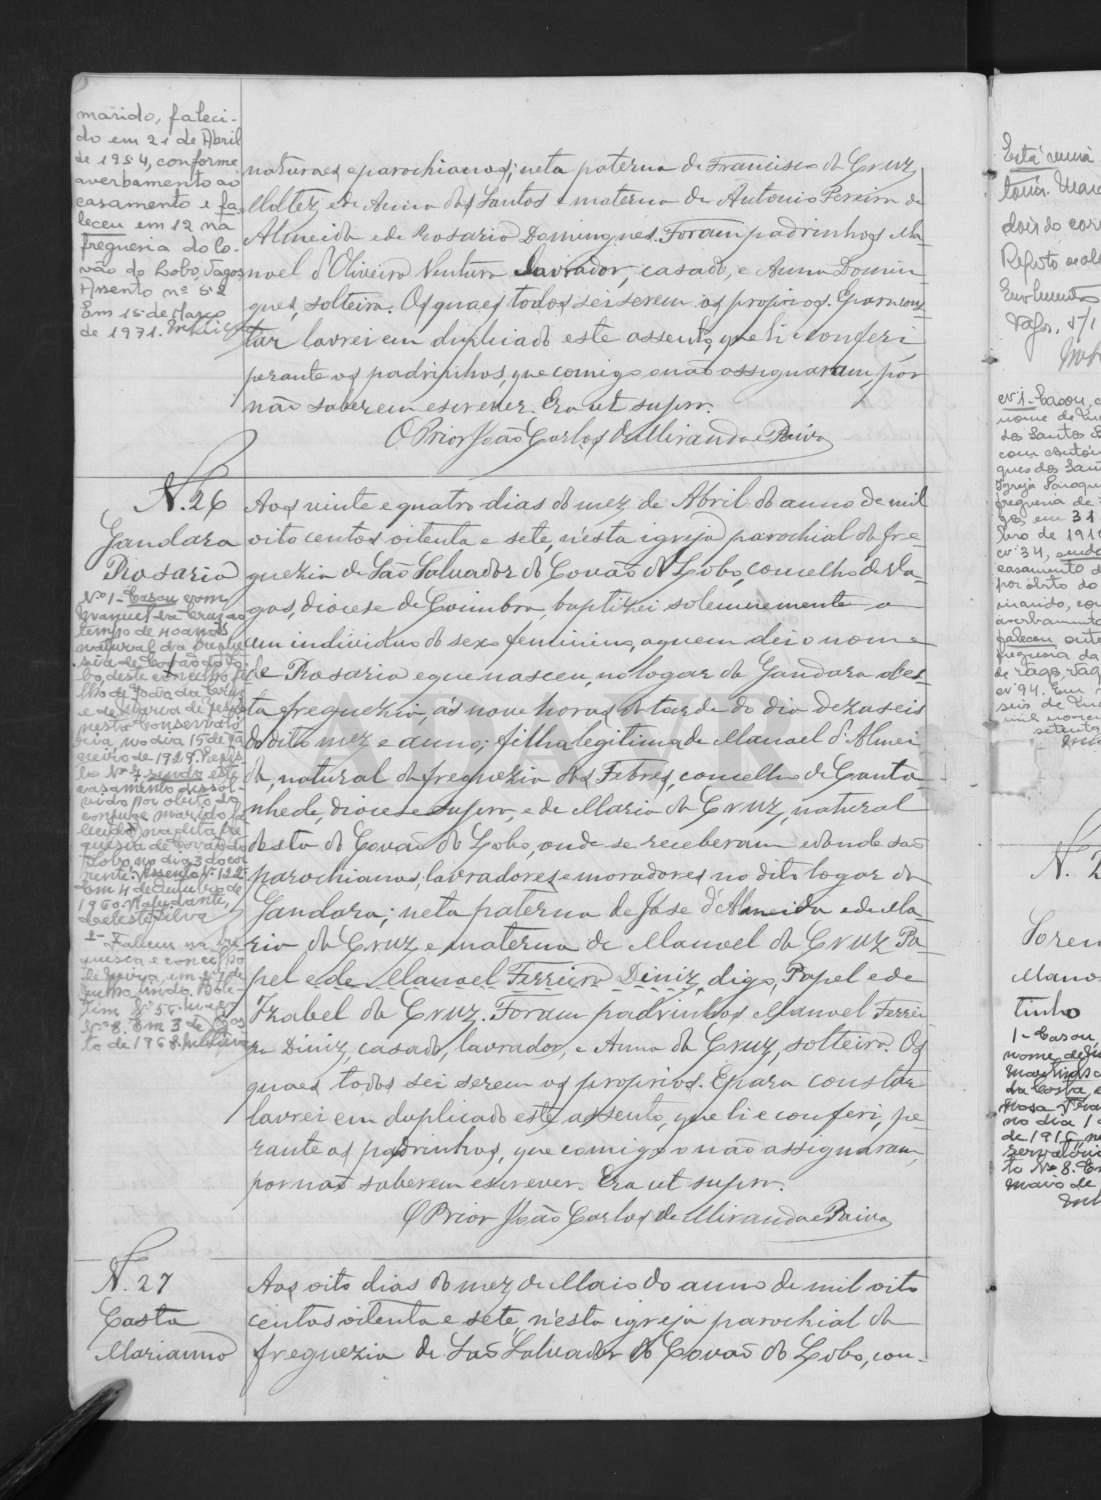 marido, faleci-
do em 21 de Abril
de 1954, conforme
averbamento ao
casamento e fa
leceu em 12 na
freguesia do Co-
vão do Lobo, Vagos
Assento nº 52
Em 15 de Março
de 1971.
naturaes e parochianos; neta paterna de Francisco da Cruz
Maltez, e de Anna dos Santos e materna de Antonio Pereira de
Almeida e de Rosario Domingues. Foram padrinhos Ma-
noel d'Oliveira Ventura lavrador, casado, e Anna Domin
gues, solteira. Os quaes todos sei serem os proprios. E para cons
tar lavrei em duplicado este assento, que li e conferi
perante os padrinhos, que comigo o não assignaram, por
não saberem escrever. Era ut supra.
O Prior João Carlos de Miranda e Paiva
N. 26
Gandara
Rosaria
Nº 1 - Casou com
Manuel da Cruz, ao
tempo de 40 anos
natural da fregue
sia de Covão do Lo-
bo, deste concelho, fi
lho de João da Cruz
e de Maria de Jesus
nesta Conservató
ria, no dia 15 de Ja
neiro de 1929. Regis-
to Nº 7, sendo este
casamento dissol-
vido por obito do
conjuge marido fa
lecido na dita fre
guesia de Covão do
Lobo, no dia 3 do cor
rente. Assento Nº 122
Em 4 de Outubro de
1960. O Ajudante,
Celeste Silva
2 - Faleceu na fre
guesia e concelho
de em 27 de
Junho findo. Bole-
tim Nº 56 maço
Nº 8. Em 3 de Agos
to de 1968.
Aos vinte e quatro dias do mez de Abril do anno de mil
oito centos oitenta e sete, n'esta igreja parochial da fre-
guezia de São Salvador do Covão do Lobo, concelho de Va-
gos, diocese de Coimbra, baptizei solemnemente a
um individuo do sexo feminino, a quem dei o nome
de Rosaria e que nasceu, no logar da Gandara d'es-
ta freguezia, ás nove horas da tarde do dia dezaseis
do dito mez e anno; filha legitima de Manoel d'Almei
da, natural da freguezia das Febres, concelho de Canta
nhede, diocese supra, e de Maria da Cruz, natural
desta do Covão do Lobo, onde se receberam e donde são
parochianos, lavradores, e moradores no dito logar da
Gandara; neta paterna de José d'Almeida e de Ma-
ria da Cruz e materna de Manoel da Cruz Pa-
pel e de Manoel Ferreira Diniz, digo, Papel e de
Izabel da Cruz. Foram padrinhos Manoel Ferrei
ra Diniz, casado, lavrador, e Anna da Cruz, solteira. Os
quaes todos sei serem os proprios. E para constar
lavrei em duplicado este assento, que li e conferi, pe-
rante os padrinhos, que comigo o não assignaram,
por não saberem escrever. Era ut supra.
O Prior João Carlos de Miranda e Paiva
N. 27
Costa
Marianno
Aos oito dias do mez de Maio do anno de mil oito
centos oitenta e sete, n'esta igreja parochial da
freguezia de São Salvador do Covão do Lobo, con-
dois do corr
Vagos,
nº 1 - Casou, c
nome de
dos Santos
com
gues dos San
Igreja Paroqu
freguesia de
gos em 31
bro de 191
nº 34, sendo
casamento d
por obito do
marido, co
averbamento
faleceu
freguesia da
nº 94. Em
seis de
mil nove
setenta
N. 2
Loren
Mano
tinho
1 - Casou,
nome de
Martinho
da Costa, e
Rosa
no dia 1
de 1916, n
servatória
to Nº 8. Em
Maio de